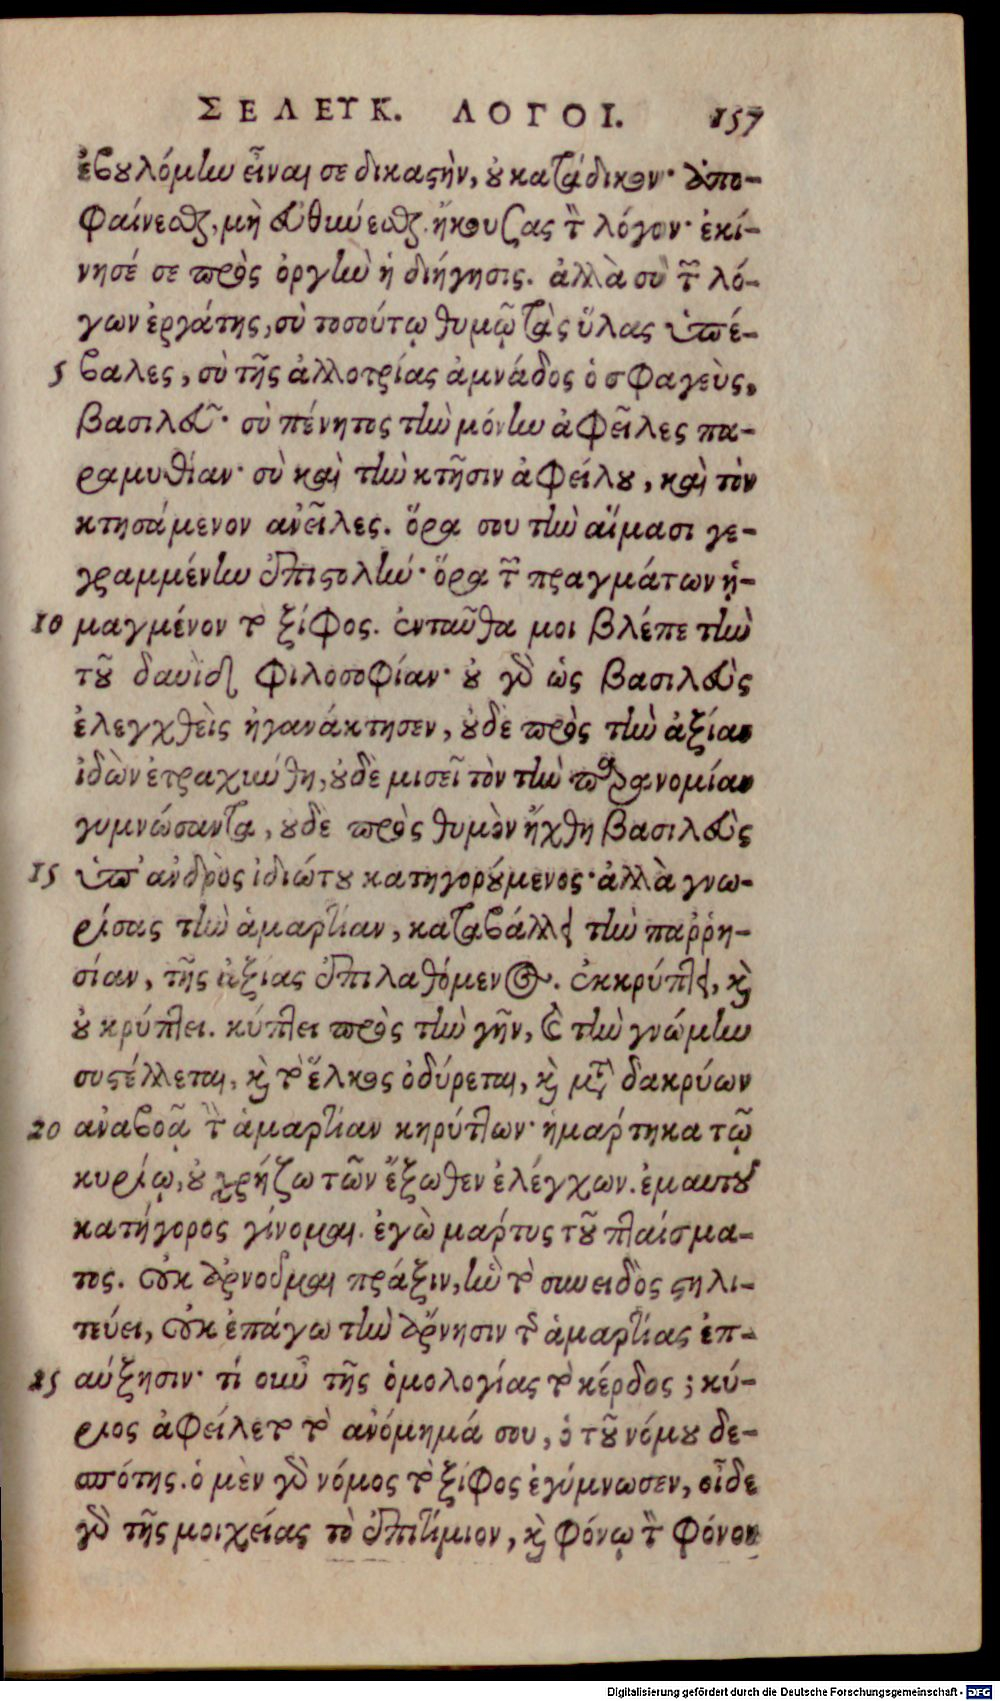 ΣΕΛΕΥΚ. ΛΟΓΟΙ. 157
ἐβουλόμην εἶναί σε δικαστὴν, οὐ κατάδικον· ἀπο-
φαίνεσθαι, μὴ εὐθύνεσθαι. ἤκουσας τὸν λόγον· ἐκί-
νησέ σε πρὸς ὀργὴν ἡ διήγησις. ἀλλὰ σὺ τῶν λό-
γων ἐργάτης, σὺ τοσούτῳ θυμῷ τὰς ὕλας ὑπέ-
5 βαλες, σὺ τῆς ἀλλοτρίας ἀμνάδος ὁ σφαγεὺς,
βασιλεῦ· σὺ πένητος τὴν μόνην ἀφεῖλες πα-
ραμυθίαν· σὺ καὶ τὴν κτῆσιν ἀφείλου, καὶ τὸν
κτησάμενον ἀνεῖλες. ὅρα σου τὴν αἵμασι γε-
γραμμένην ἐπιστολήν· ὅρα τῶν πραγμάτων ᾑ-
10 μαγμένον τὸ ξίφος. ἐνταῦθα μοι βλέπε τὴν
τοῦ δαυὶδ φιλοσοφίαν· οὐ γὰρ ὡς βασιλεὺς
ἐλεγχθεὶς ἠγανάκτησεν, οὐδὲ πρὸς τὴν ἀξίαν
ἰδὼν ἐτραχύνθη, οὐδὲ μισεῖ τὸν τὴν παρανομίαν
γυμνώσαντα, οὐδὲ πρὸς θυμὸν ἤχθη βασιλεὺς
15 ὑπ' ἀνδρὸς ἰδιώτου κατηγορούμενος· ἀλλὰ γνω-
ρίσας τὴν ἁμαρτίαν, καταβάλλει τὴν παῤῥη-
σίαν, τῆς ἀξίας ἐπιλαθόμενος. ἐκκρύπτει, καὶ
οὐ κρύπτει. κύπτει πρὸς τὴν γῆν, καὶ τὴν γνώμην
συστέλλεται, καὶ τὸ ἕλκος ὀδύρεται, καὶ μετὰ δακρύων
20 ἀναβοᾷ τὴν ἁμαρτίαν κηρύττων· ἡμάρτηκα τῷ
κυρίῳ, οὐ χρῄζω τῶν ἔξωθεν ἐλέγχων. ἐμαυτοῦ
κατήγορος γίνομαι. ἐγὼ μάρτυς τοῦ πταίσμα-
τος. οὐκ ἀρνοῦμαι πρᾶξιν, ἣν τὸ συνειδὸς στηλι-
τεύει, οὐκ ἐπάγω τὴν ἄρνησιν τῆς ἁμαρτίας ἐπ-
25 αύξησιν· τί οὖν τῆς ὁμολογίας τὸ κέρδος; κύ-
ριος ἀφείλετο τὸ ἀνόμημά σου, ὁ τοῦ νόμου δε-
σπότης. ὁ μὲν γὰρ νόμος τὸ ξίφος ἐγύμνωσεν, οἶδε
γὰρ τῆς μοιχείας τὸ ἐπιτίμιον, καὶ φόνῳ τὸν φόνον
Digitalisierung gefördert durch die Deutsche Forschungsgemeinschaft - DFG